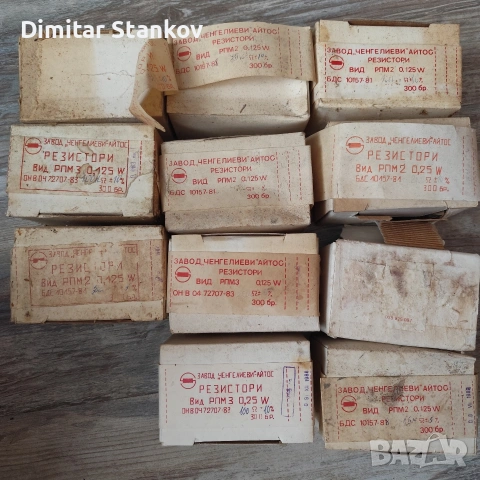 Dimitar Stankov
ЗАВОД „ЧЕНГЕЛИЕВИ" АЙТОС
РЕЗИСТОРИ
ВИД РПМ2 0.125W
БДС 10157-81
300 бр.
ЗАВОД „ЧЕНГЕЛИЕВИ" АЙТОС
РЕЗИСТОРИ
ВИД РПМ2 0.125 W
БДС 10157-81
300 бр.
ЗАВОД „ЧЕНГЕЛИЕВИ" АЙТОС
РЕЗИСТОРИ
ВИД РПМ3 0,125 W
ОН В 04 72707-83
300 бр.
ЗАВОД „ЧЕНГЕЛИЕВИ" АЙТОС
РЕЗИСТОРИ
ВИД РПМ2 0.125W
БДС 10157-81
300 бр.
ЗАВОД „ЧЕНГЕЛИЕВИ" АЙТОС
РЕЗИСТОРИ
ВИД РПМ2 0,25 W
БДС 10157-81
300 бр.
ЗАВОД „ЧЕНГЕЛИЕВИ" АЙТОС
ВИД РПМ2 0,125 W
БДС 10157-81
300 бр.
ЗАВОД „ЧЕНГЕЛИЕВИ" АЙТОС
РЕЗИСТОРИ
ВИД РПМ3 0.125 W
ОН В 04 72707-83 Ω±
300 бр.
ЗАВОД „ЧЕНГЕЛИЕВИ" АЙТОС
РЕЗИСТОРИ
ВИД РПМ3 0,25 W
ОН В 04 72707-83 100 Ω±10%
300 бр.
ЗАВОД „ЧЕНГЕЛИЕВИ" АЙТОС
РЕЗИСТОРИ
ВИД РПМ2 0.125 W
БДС 10157-81
300 бр.
BAZAR